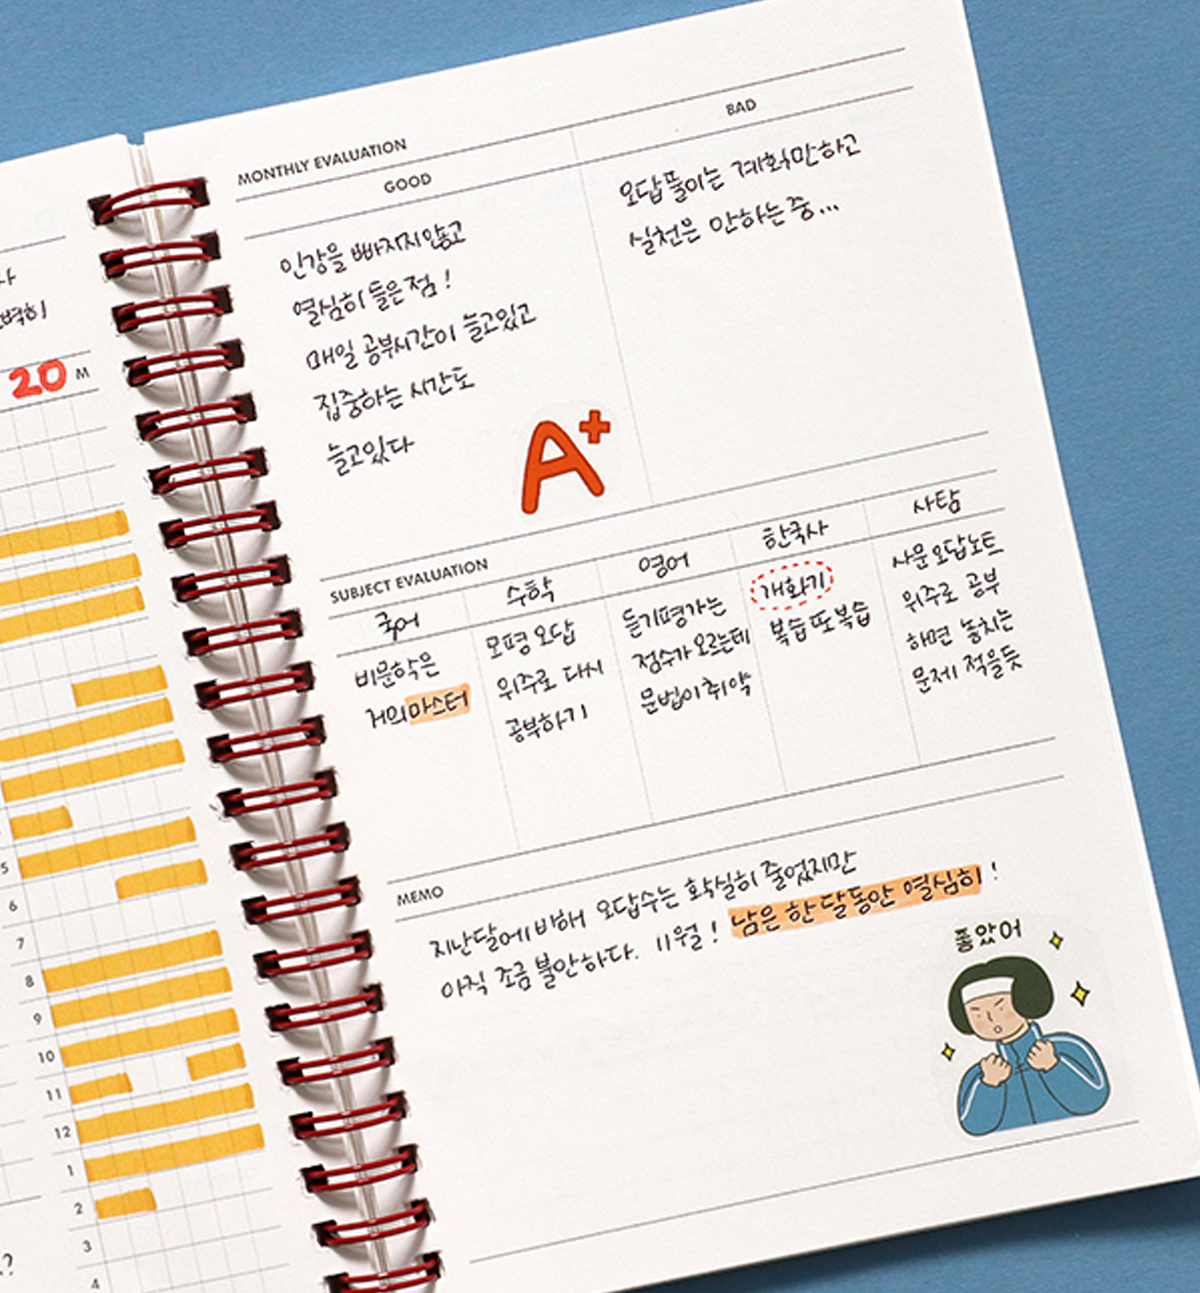 20 M
5
6
7
8
9
10
11
12
1
2
3
4
MONTHLY EVALUATION
GOOD
BAD
인강을 빠지지않고
열심히 들은점!
매일 공부시간이 늘고있고
집중하는 시간도
늘고있다
A+
오답풀이는 계획만하고
실천은 안하는중...
SUBJECT EVALUATION
국어
수학
영어
한국사
사탐
비문학은
거의마스터
모평 오답
위주로 다시
공부하기
듣기평가는
점수가 오르는데
문법이취약
개화기
복습또복습
사문오답노트
위주로 공부
하면 놓치는
문제 적을듯
MEMO
지난달에비해 오답수는 확실히 줄었지만
아직 조금 불안하다. 11월! 남은 한달동안 열심히!
좋았어